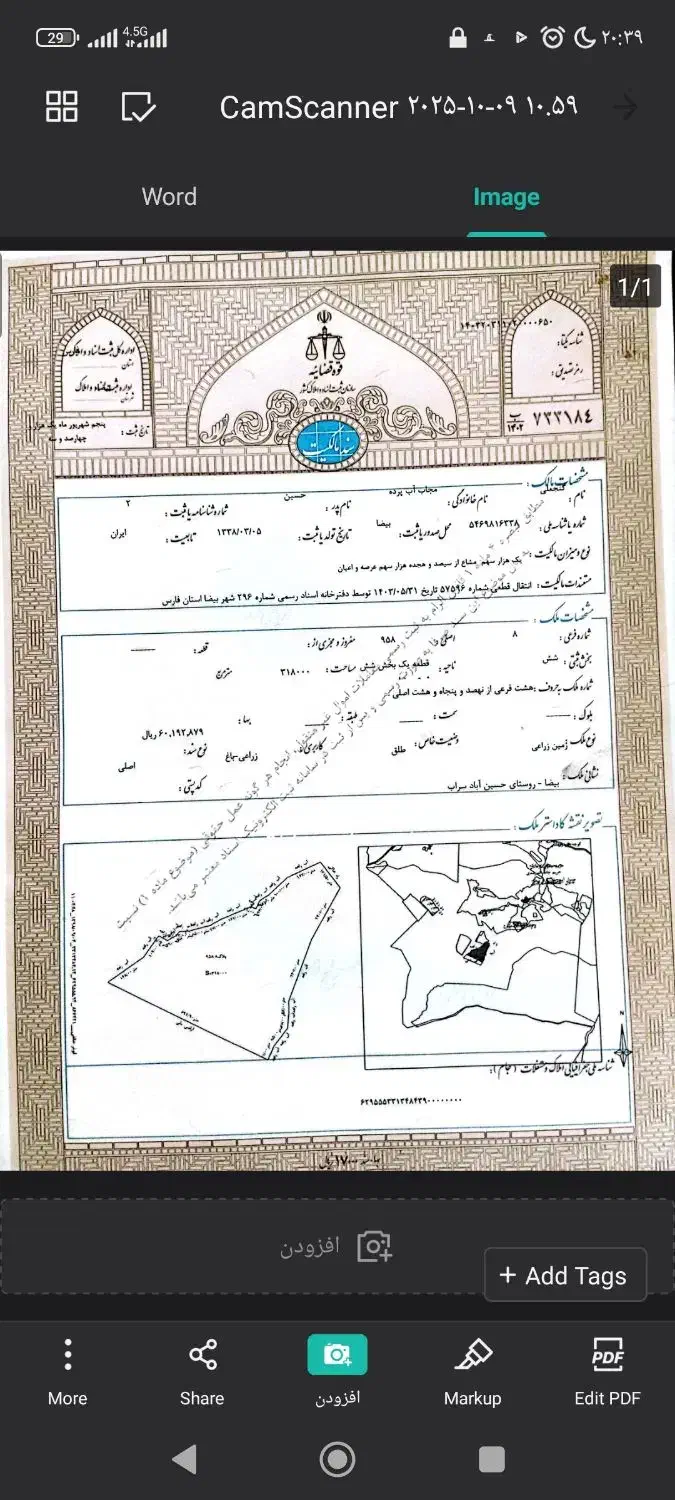 29
4.5G
۲۰:۳۹
CamScanner ۲۰۲۵-۱۰-۰۹ ۱۰.۵۹
Word
Image
1/1
قوه قضائیه
سازمان ثبت اسناد و املاک کشور
سند مالکیت
اداره کل ثبت اسناد و املاک
استان
اداره ثبت اسناد و املاک
تاریخ ثبت : پنجم شهریور ماه یک هزار و چهارصد و سه
شناسه یکتا :
رمز تصدیق :
۷۳۳۱۸۴
ب
۱۴۰۲
مشخصات مالک :
نام :
نام خانوادگی : حجاب آب پرده
نام پدر : حسین
شماره شناسنامه یا ثبت : ۲
شماره یا شناسه ملی : ۵۴۶۹۸۱۶۳۳۸
محل صدور یا ثبت : بیضا
تاریخ تولد یا ثبت : ۱۳۳۸/۰۳/۰۵
تابعیت : ایران
نوع و میزان مالکیت : یک هزار سهم مشاع از سیصد و هجده هزار سهم عرصه و اعیان
مستندات مالکیت : انتقال قطعی شماره ۵۷۵۹۶ تاریخ ۱۴۰۳/۰۵/۳۱ توسط دفترخانه اسناد رسمی شماره ۲۹۶ شهر بیضا استان فارس
مشخصات ملک :
شماره فرعی : ۸
اصلی : ۹۵۸
مفروز و مجزی از :
قطعه :
بخش ثبتی : شش
ناحیه : قطعه یک بخش شش
مساحت : ۳۱۸۰۰۰ مترمربع
شماره ملک به حروف : هشت فرعی از نهصد و پنجاه و هشت اصلی
بلوک :
سمت :
طبقه :
بها : ۶۰,۱۹۲,۸۷۹ ریال
نوع ملک : زمین زراعی
وضعیت خاص : طلق
کاربری : زراعی-باغ
نوع سند : اصلی
نشانی ملک : بیضا - روستای حسین آباد سراب
کد پستی :
تصویر نقشه کاداستر ملک :
N
شناسه ملی جغرافیایی املاک و مستغلات (جام) :
۶۲۹۵۵۵۳۳۱۳۴۸۴۳۹۰۰۰۰۰۰۰۰
افزودن
+ Add Tags
More
Share
افزودن
Markup
PDF
Edit PDF